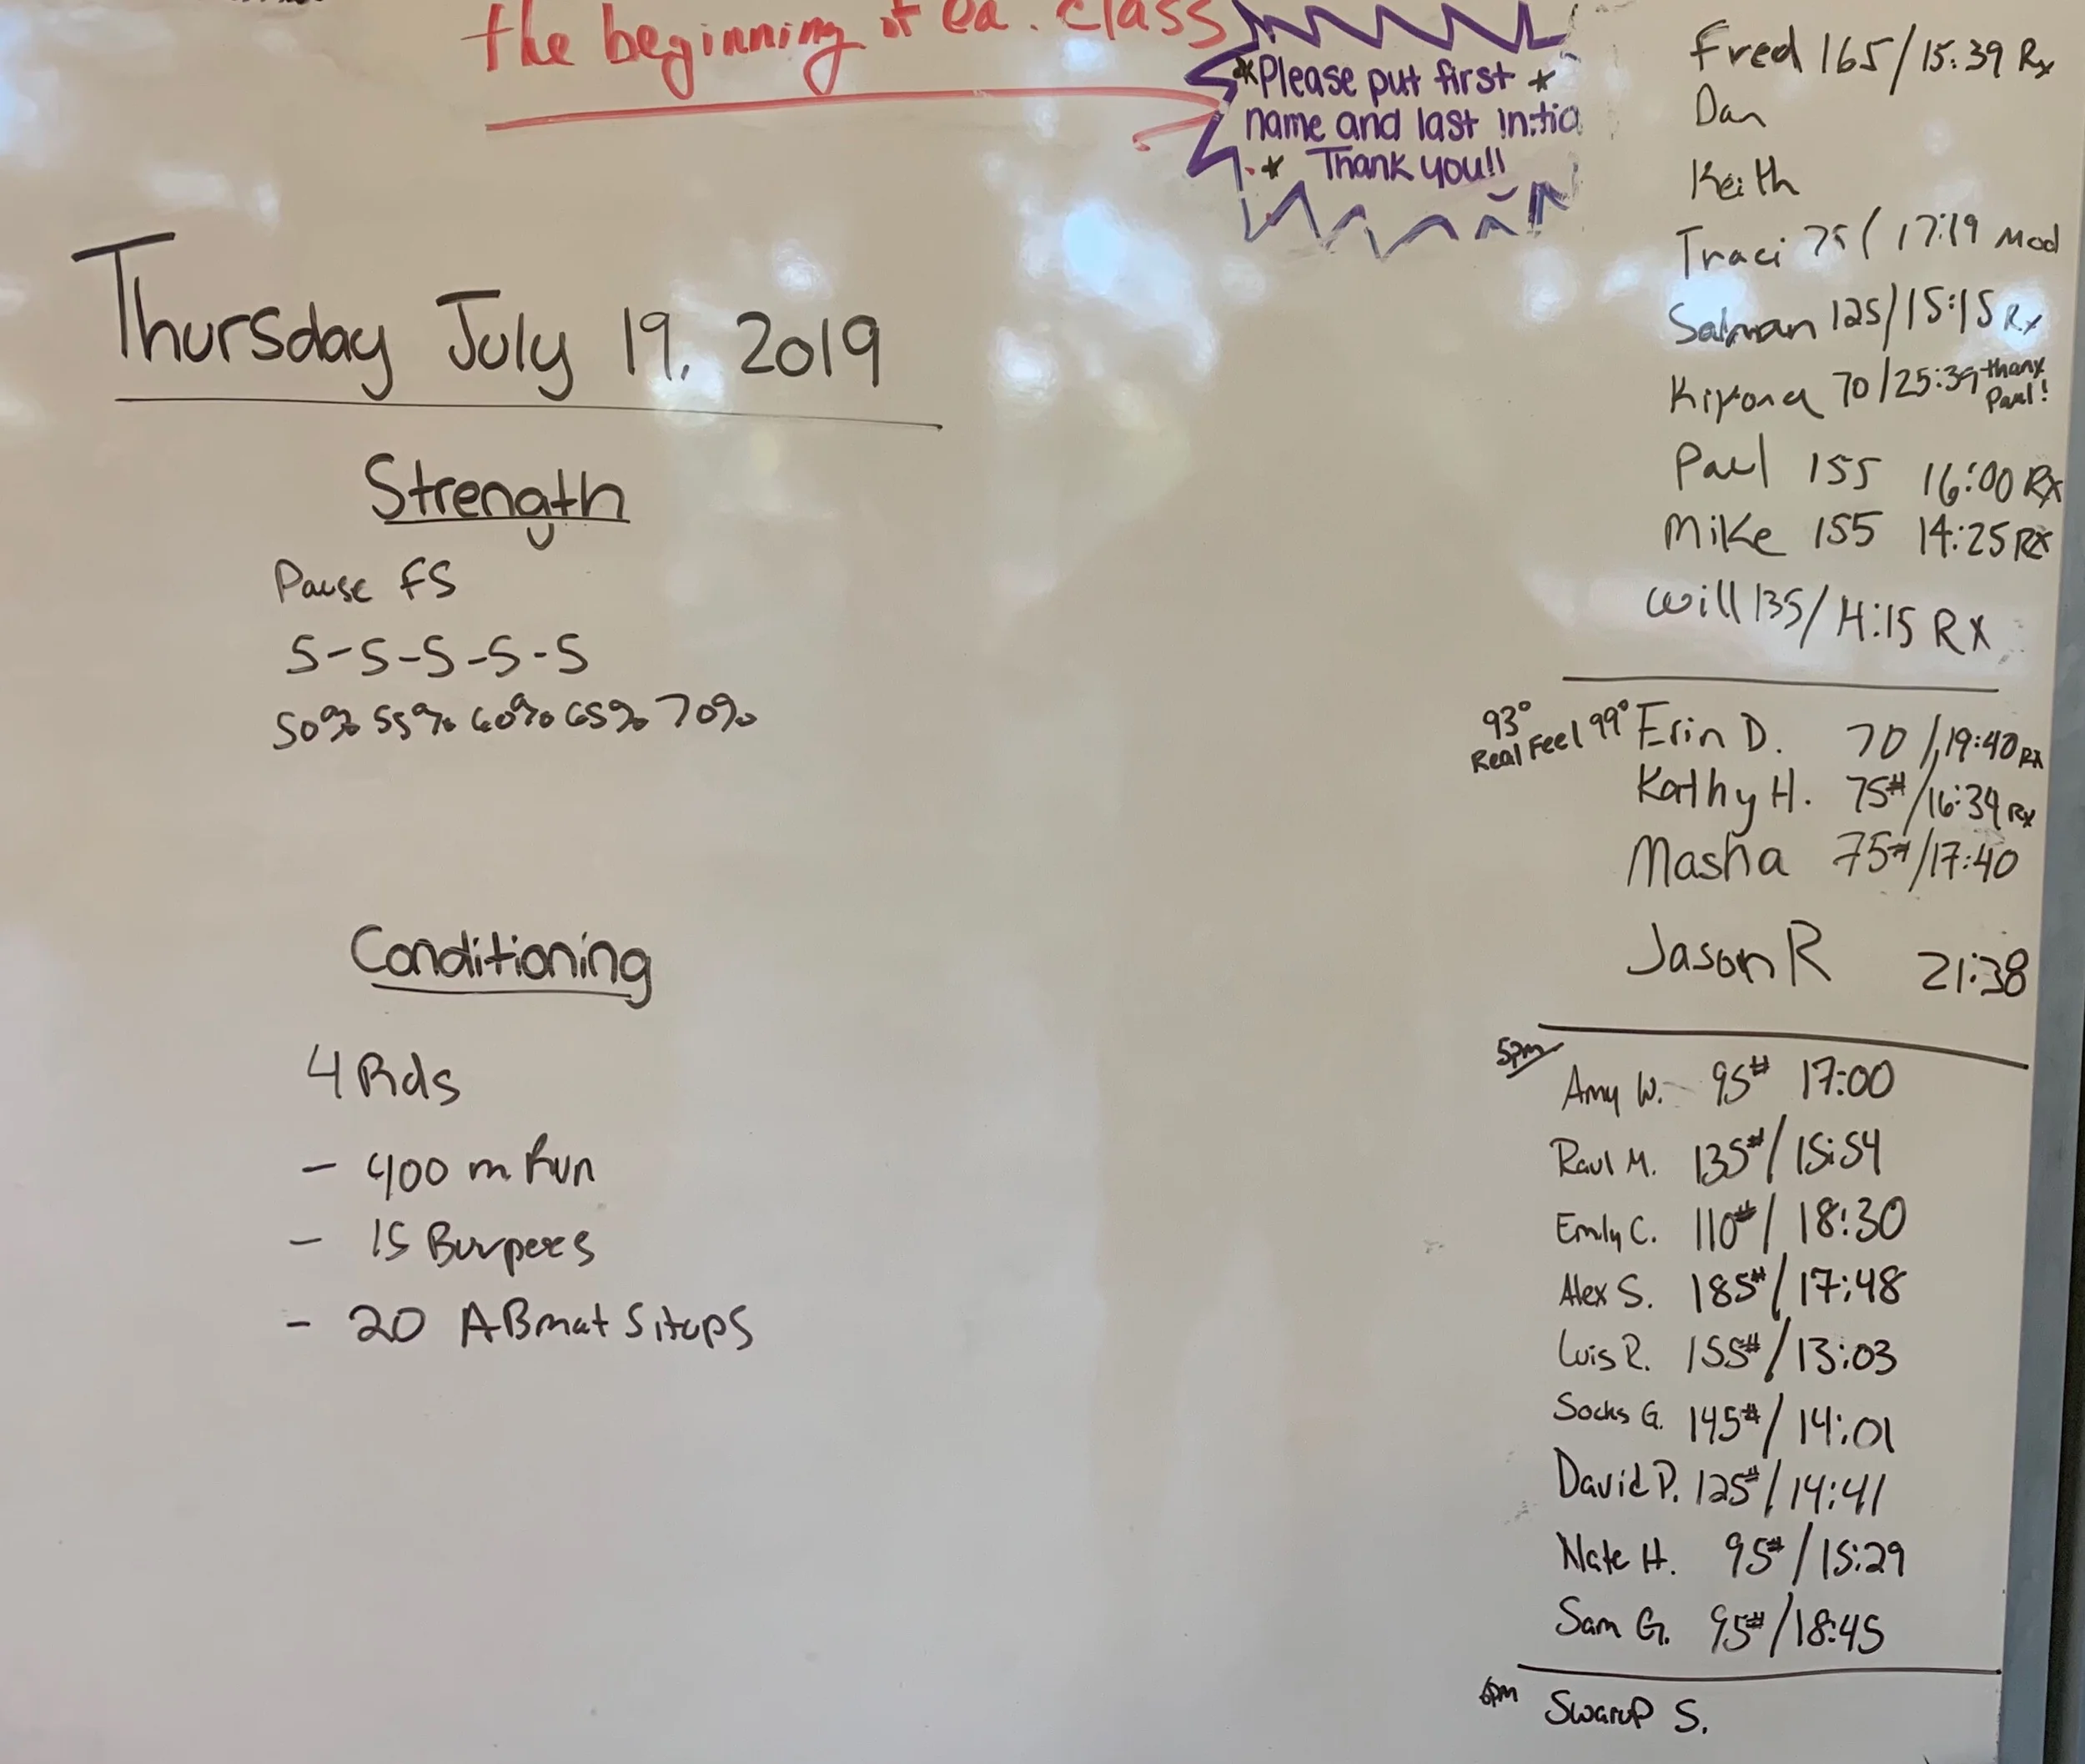 the beginning of ea. class
*Please put first *
name and last initia
* Thank you!!
Thursday July 19, 2019
Strength
Pause FS
5-5-5-5-5
50% 55% 60% 65% 70%
Conditioning
4 Rds
- 400 m Run
- 15 Burpees
- 20 ABmat Situps
Fred 165/15:39 Rx
Dan
Keith
Traci 75/17:19 Mod
Salman 125/15:15 Rx
70/25:39 thanx Paul!
Paul 155 16:00 Rx
Mike 155 14:25 Rx
Will 135/ Rx
93° Real Feel 99°
Erin D. 70/19:40 Rx
Kathy H. 75#/16:39 Rx
Masha 75#/17:40
Jason R 21:38
5pm
Amy W. 95# 17:00
Raul M. 135#/15:54
Emily C. 110#/18:30
Alex S. 185#/17:48
Luis R. 155#/13:03
Socks G. 145#/14:01
David P. 125#/14:41
Nate H. 95#/15:29
Sam G. 95#/18:45
6pm Swarup S.